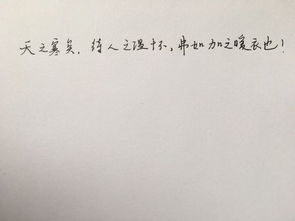 天之寒矣,待人之温怀,弗如加之暖衣也!